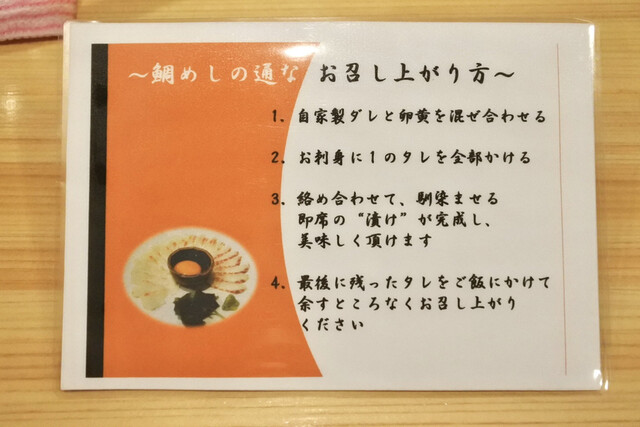 ~鯛めしの通な お召し上がり方~
1、自家製ダレと卵黄を混ぜ合わせる
2、お刺身に1のタレを全部かける
3、絡め合わせて、馴染ませる
即席の“漬け”が完成し、
美味しく頂けます
4、最後に残ったタレをご飯にかけて
余すところなくお召し上がり
ください